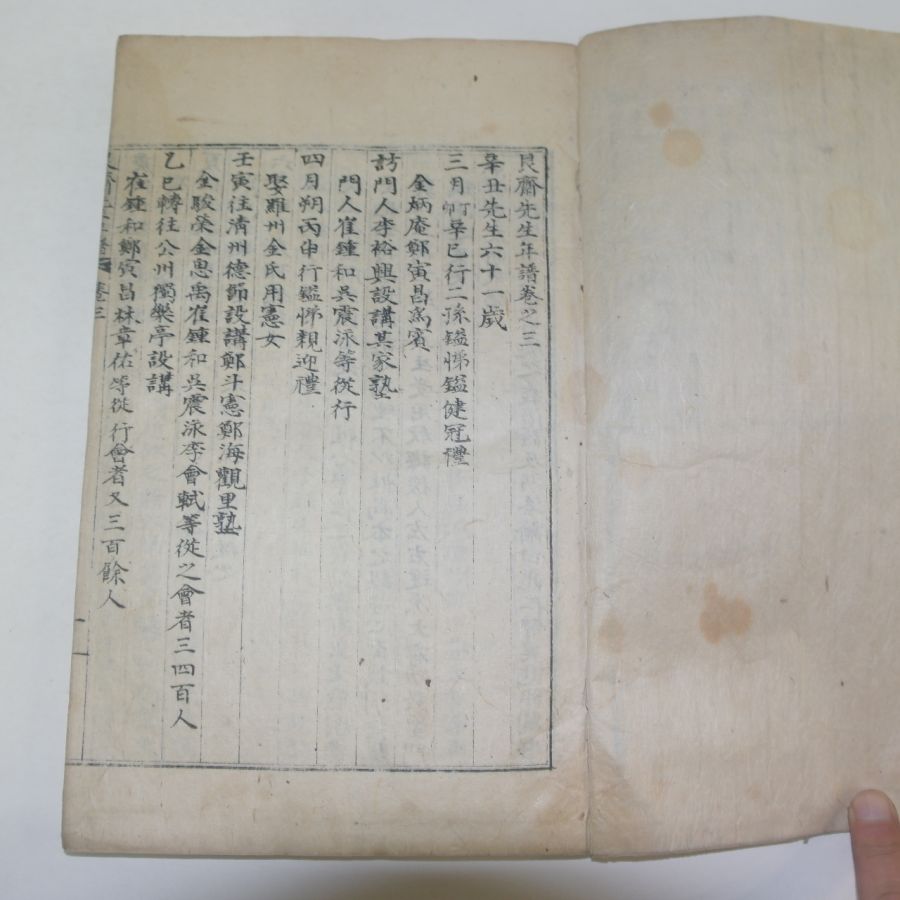 艮齋先生年譜卷之三
辛丑先生六十一歲
三月 辛巳行二孫鎰悌鎰健冠禮
金炳庵鄭寅昌爲賓
訪門人李裕興設講其家塾
門人崔鍾和吳震泳等從行
四月朔丙申行鎰悌親迎禮
娶羅州金氏用憲女
壬寅往淸州德節設講鄭斗憲鄭海觀里塾
金駿榮金思禹崔鍾和吳震泳李會軾等從之會者三四百人
乙巳轉往公州獨樂亭設講
崔鍾和鄭寅昌林章佑等從行會者又三百餘人
齋先生年譜 卷三
一